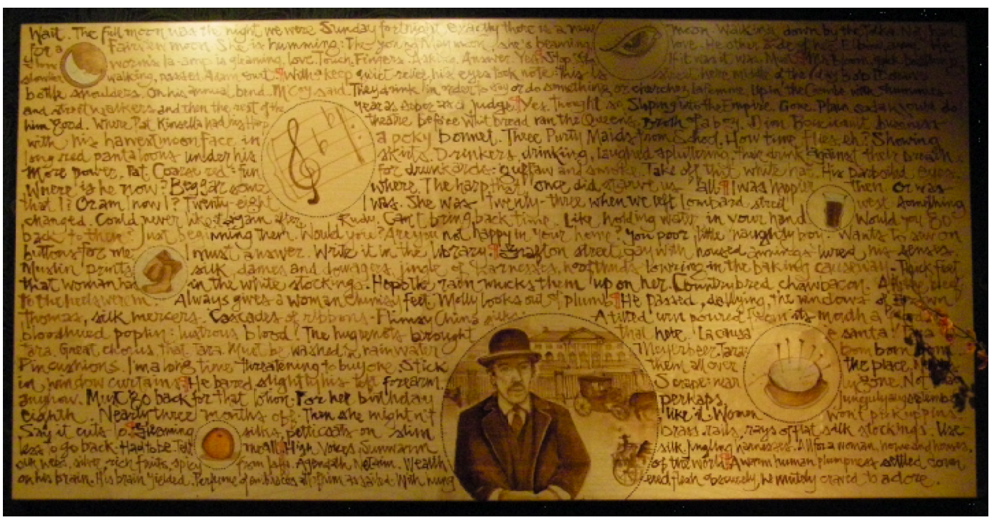 Wait. The full moon was the night we were Sunday fortnight exactly there is a new moon. Walking down by the Tolka. Not bad
for a Fairview moon. She was humming: The young May moon she's beaming, love. He other side of her. Elbow, arm. He.
Glowworm's la-amp is gleaming, love. Touch. Fingers. Asking. Answer. Yes. Stop. Stop. If it was it was. Must. Mr Bloom, quick breathing,
slower walking, passed Adam court. With a keep quiet relief, his eyes took note: this is street here middle of the day Bob Doran's
bottle shoulders. On his annual bend, M'Coy said. They drink in order to say or do something or cherchez la femme. Up in the Coombe with chummies
and streetwalkers and then the rest of the year as sober as a judge. Yes. Thought so. Sloping into the Empire. Gone. Plain soda would do
him good. Where Pat Kinsella had his Harp theatre before Whitbred ran the Queen's. Broth of a boy. Dion Boucicault business
with his harvestmoon face in a poky bonnet. Three Purty Maids from School. How time flies eh? Showing
long red pantaloons under his skirts. Drinkers, drinking, laughed spluttering, their drink against their breath.
More power, Pat. Coarse red: fun for drunkards: guffaw and smoke. Take off that white hat. His parboiled eyes.
Where is he now? Beggar somewhere. The harp that once did starve us all. I was happier then. Or was
that I? Or am I now I? Twenty-eight I was. She was twenty-three when we left Lombard street west something
changed. Could never like it again after Rudy. Can't bring back time. Like holding water in your hand. Would you go
back to then? Just beginning then. Would you? Are you not happy in your home, you poor little naughty boy? Wants to sew on
buttons for me. I must answer. Write it in the library. Grafton street gay with housed awnings lured his senses.
Muslin prints silk dames and dowagers, jingle of harnesses, hoofthuds lowringing in the baking causeway. Thick feet
that woman has in the white stockings. Hope the rain mucks them up on her. Countrybred chawbacon. All the beef
to the heels were in. Always gives a woman clumsy feet. Molly looks out of plumb. He passed, dallying, the windows of Brown
Thomas, silk mercers. Cascades of ribbons. Flimsy China silks. A tilted urn poured from its mouth a flood of
bloodhued poplin: lustrous blood. The huguenots brought that here. La causa è santa!
Tara. Great chorus that. Tara. Must be washed in rainwater. Meyerbeer. Tara: bom bom bom.
Pincushions. I'm a long time threatening to buy one. Stick them all over the place. Needles
in window curtains. He bared slightly his left forearm. Scrape: nearly gone. Not
anyhow. Must go back for that lotion. For her birthday perhaps. Junejulyaugseptember
eighth. Nearly three months off. Then she might n't like it. Women won't pick up pins.
Say it cuts lo. Gleaming silks, petticoats on slim brass rails, rays of flat silk stockings. Use
less to go back. Had to be. Tell me all. High voices. Sunwarm silk. Jingling harnesses. All for a woman, home and houses,
silk webs, silver, rich fruits, spicy from Jaffa. Agendath Netaim. Wealth of the world. A warm human plumpness settled down
on his brain. His brain yielded. Perfume of embraces all him assailed. With hungered flesh obscurely, he mutely craved to adore.